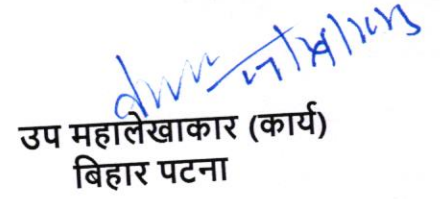 उप महालेखाकार (कार्य)
बिहार पटना